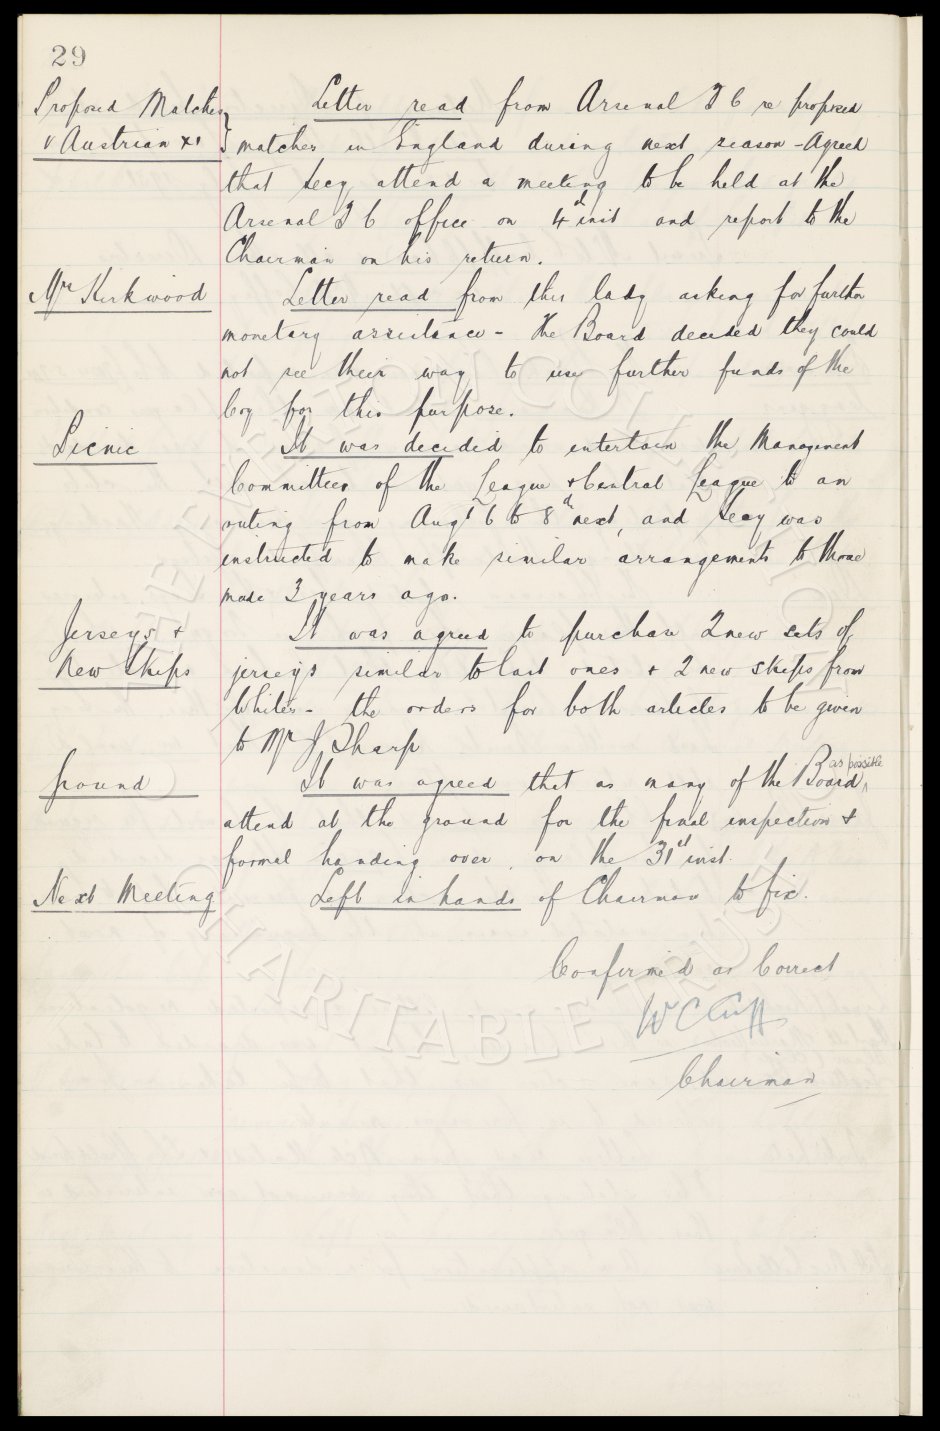 29
Proposed Matches
v Austrian XI
Letter read from Arsenal F C re proposed
matches in England during next season - Agreed
that Secy attend a meeting to be held at the
Arsenal F C office on 4th inst and report to the
Chairman on his return.
Mrs Kirkwood
Letter read from this lady asking for further
monetary assistance - The Board decided they could
not see their way to use further funds of the
Coy for this purpose.
Picnic
It was decided to entertain the Management
Committees of the League & Central League to an
outing from Augt 6 to 8th next, and Secy was
instructed to make similar arrangements to those
made 3 years ago.
Jerseys &
New Skips
It was agreed to purchase 2 new sets of
jerseys similar to last ones & 2 new skips from
Whites - the orders for both articles to be given
to Mr J Sharp
Ground
It was agreed that as many of the Board as possible
attend at the ground for the final inspection &
formal handing over on the 31st inst.
Next Meeting
Left in hands of Chairman to fix.
Confirmed as Correct
W C Cuff
Chairman
CHARITABLE TRUST